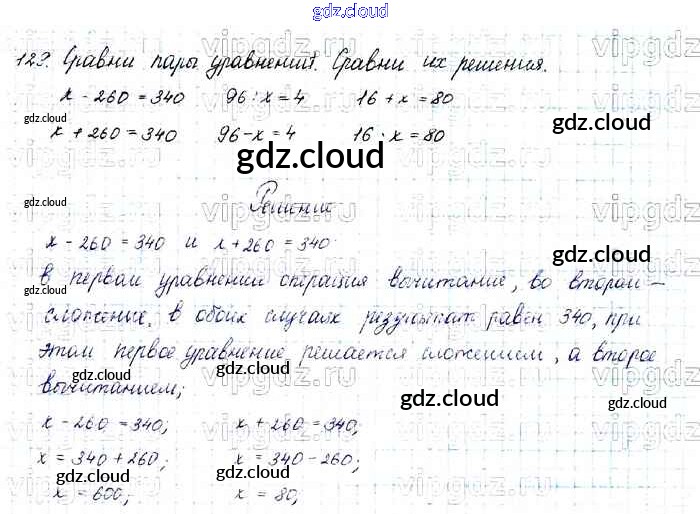 gdz.cloud
123. Сравни пары уравнений. Сравни их решения.
x - 260 = 340 96 : x = 4 16 + x = 80
x + 260 = 340 96 - x = 4 16 · x = 80
gdz.cloud
gdz.cloud
gdz.cloud
Решение
x - 260 = 340 и x + 260 = 340
gdz.cloud
В первом уравнении операция вычитание, во втором –
gdz.cloud
сложение, в обоих случаях результат равен 340, при
этом первое уравнение решается сложением, а второе
gdz.cloud
gdz.cloud
вычитанием;
gdz.cloud
gdz.cloud
x - 260 = 340; x + 260 = 340;
x = 340 + 260; x = 340 - 260;
gdz.cloud
gdz.cloud
x = 600; x = 80;
vipgdz.ru